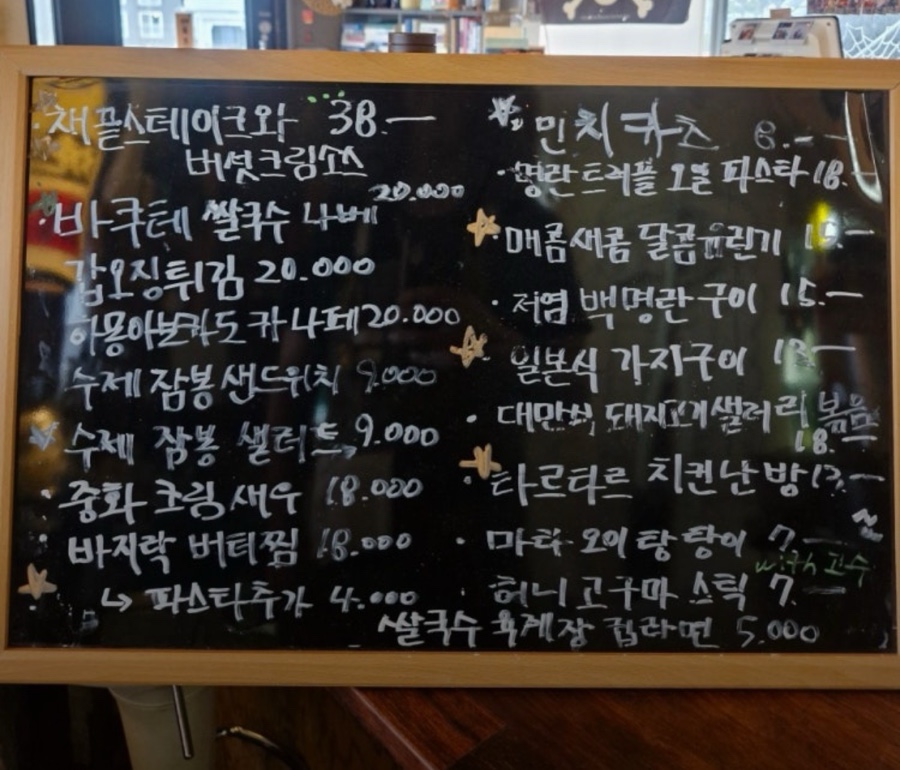 채끝스테이크와 38.—
버섯크림소스
바쿠테 쌀국수 나베 20.000
갑오징튀김 20.000
아몽아보카도 카나페 20.000
수제 잠봉 샌드위치 9.000
수제 잠봉 샐러드, 9.000
중화 크림새우 18.000
바지락 버터찜 18.000
↳ 파스타추가 4.000
민치카츠 6.—
명란트러플 오일 파스타 18.
매콤새콤 달콤유린기
저염 백명란구이 15.—
일본식 가지구이
대만식 돼지고기샐러리 볶음
18.
타르타르 치킨난방
마라 오이 탕탕이 7.—
with 고수
허니고구마 스틱 7.—
쌀국수 육개장 컵라면 5,000